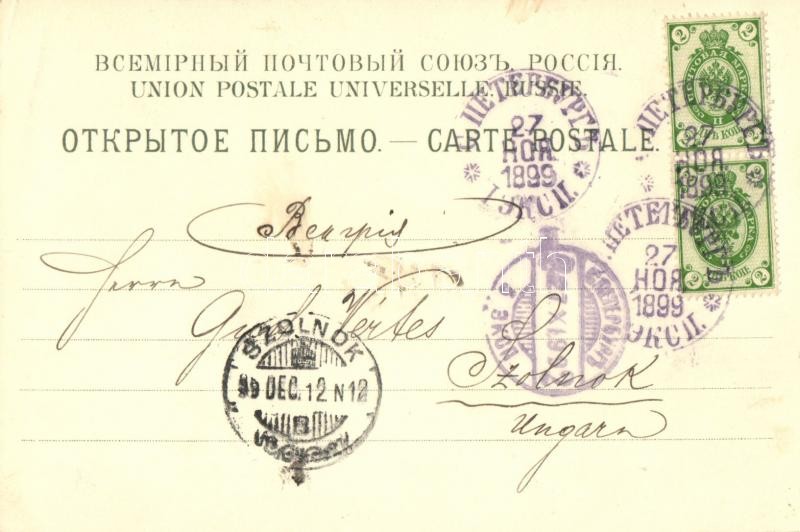 ВСЕМІРНЫЙ ПОЧТОВЫЙ СОЮЗЪ. РОССІЯ.
UNION POSTALE UNIVERSELLE. RUSSIE.
ОТКРЫТОЕ ПИСЬМО. — CARTE POSTALE.
2 2
ПОЧТОВАЯ МАРКА
2 2
С. ПЕТЕРБУРГЪ
27
НОЯ
1899
1 ЭКСП.
ПЕТЕРБУРГЪ
27
НОЯ
1899
ПЕТЕРБУРГЪ
27
НОЯ
1899
ЭКСП.
Венгрія
Herrn
Vértes
Szolnok
Ungarn
SZOLNOK
99 DEC. 12 N 12
B